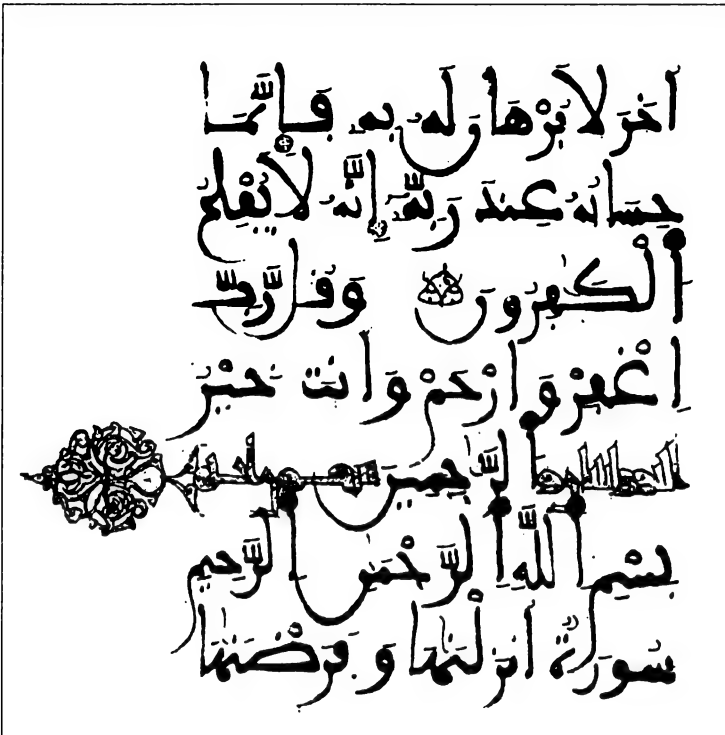 ءَاخَرَ لَا بُرْهَانَ لَهُۥ بِهِۦ فَإِنَّمَا
حِسَابُهُۥ عِندَ رَبِّهِۦٓ إِنَّهُۥ لَا يُفْلِحُ
ٱلْكَٰفِرُونَ وَقُل رَّبِّ
ٱغْفِرْ وَٱرْحَمْ وَأَنتَ خَيْرُ
ٱلرَّٰحِمِينَ
بِسْمِ ٱللَّهِ ٱلرَّحْمَٰنِ ٱلرَّحِيمِ
سُورَةٌ أَنزَلْنَٰهَا وَفَرَضْنَٰهَا